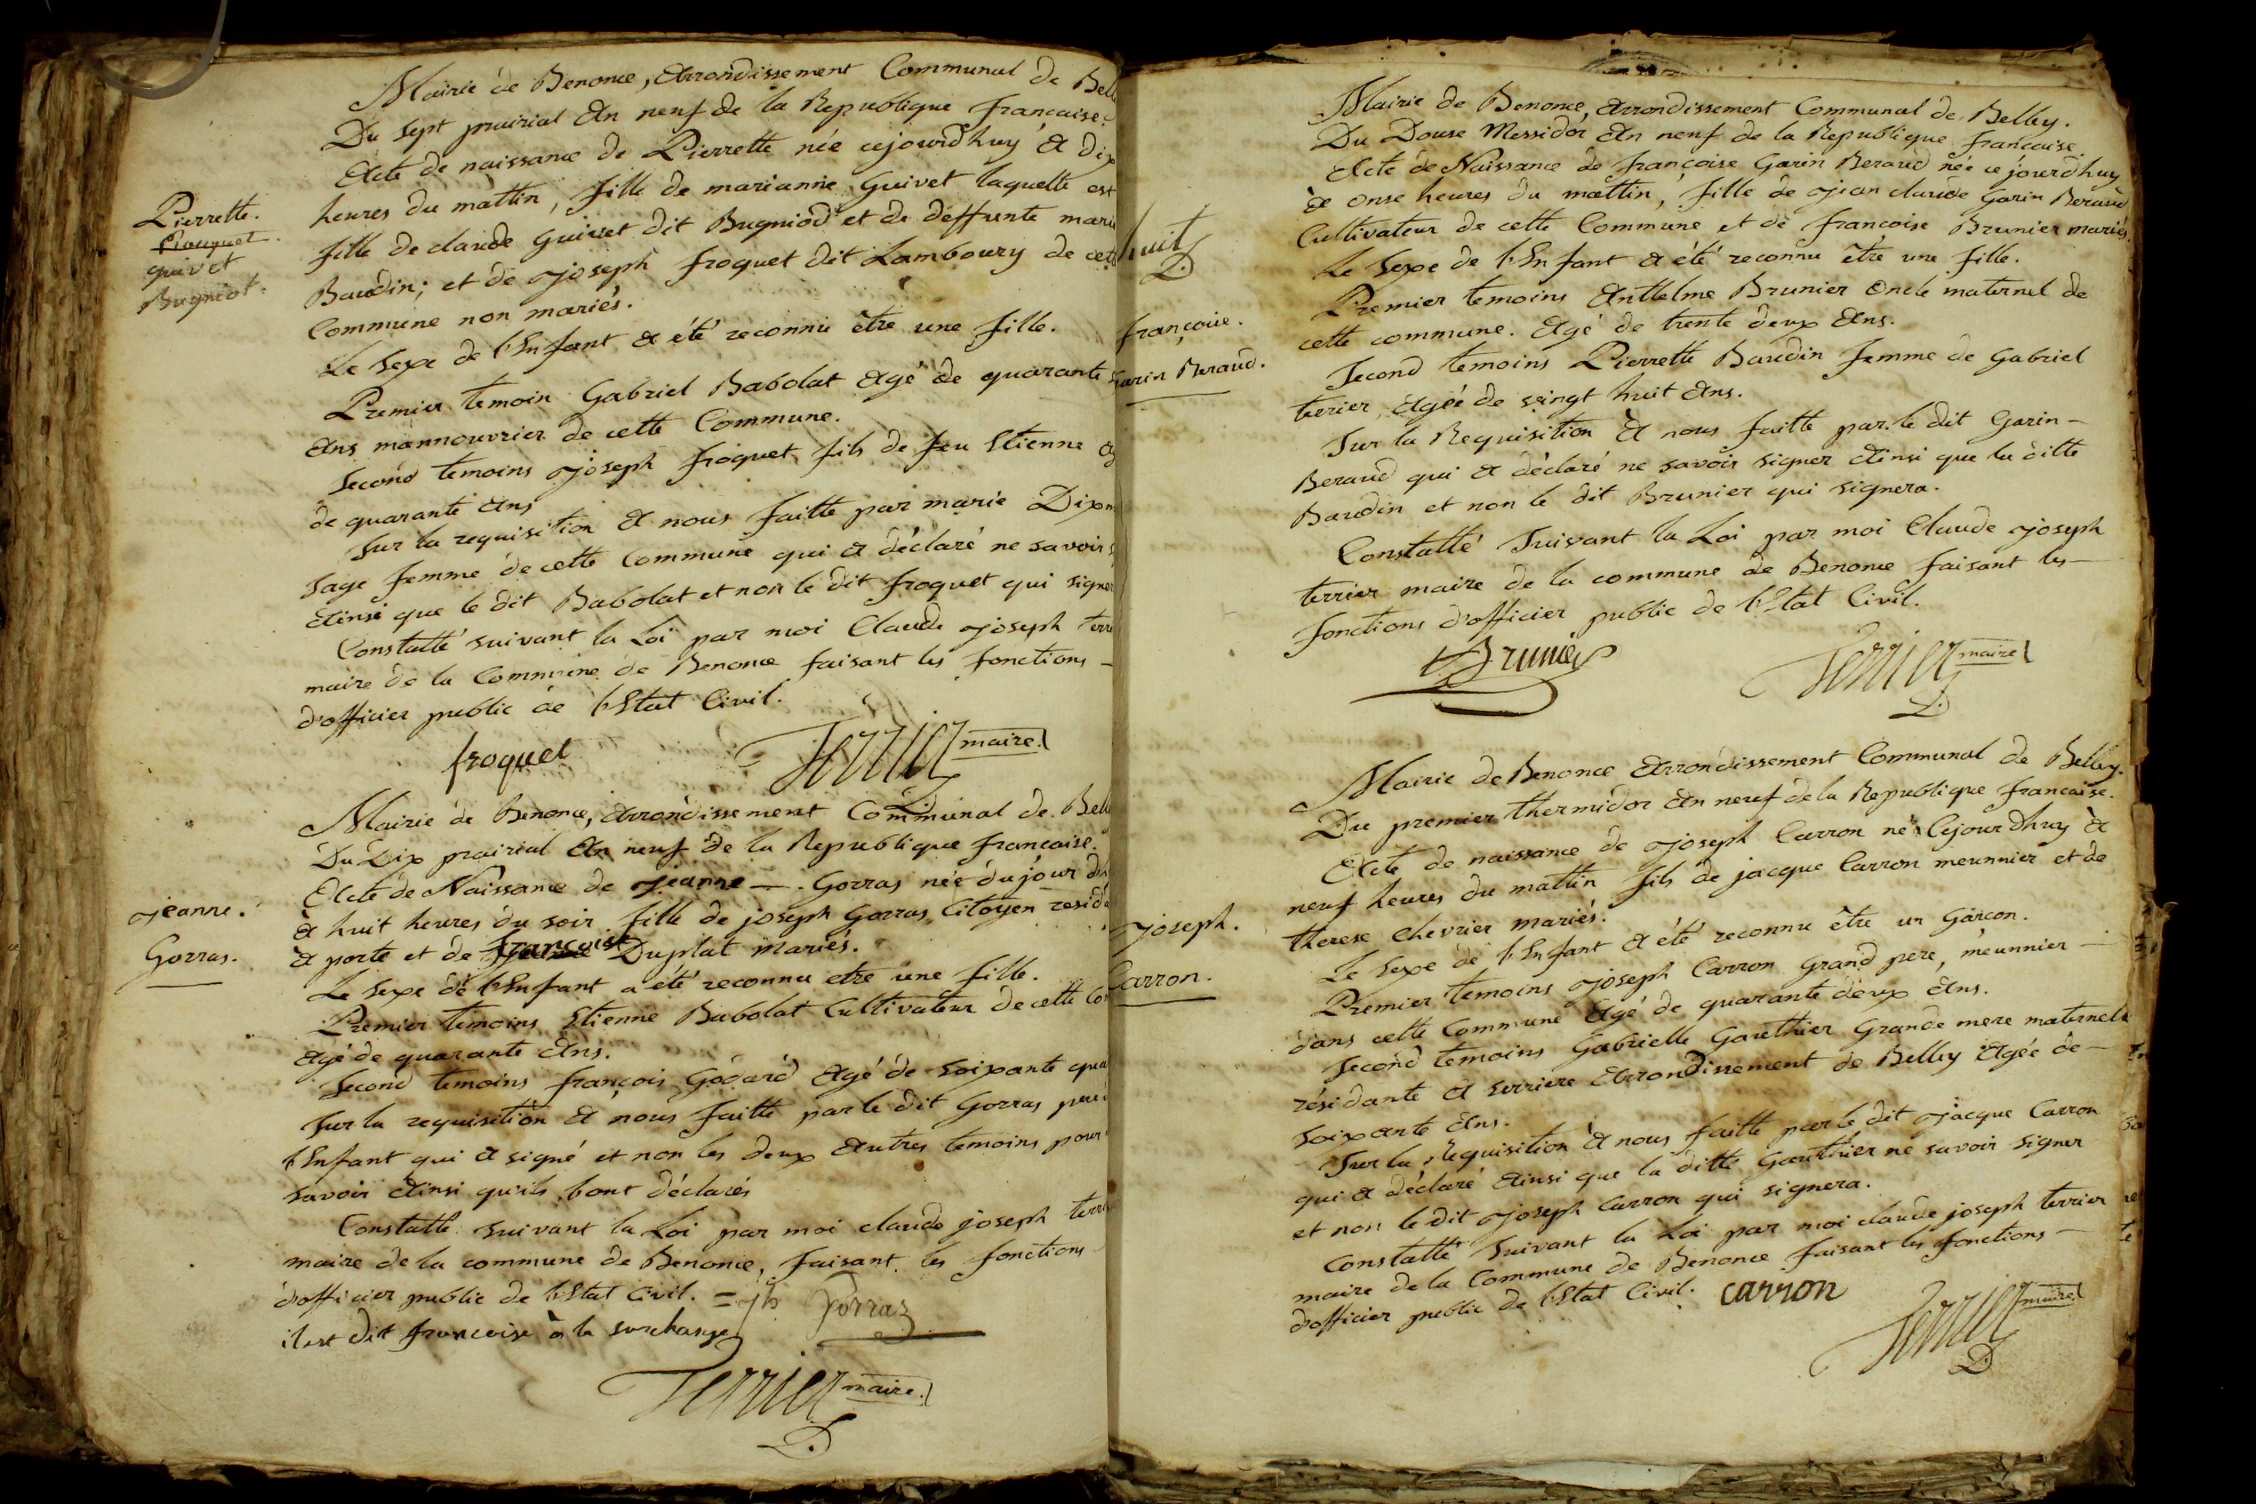 Mairie de Benonce, Arrondissement Communal de Bell
Du Sept prairial An neuf de la Republique francaise.
Acte de naissance de Pierrette née cejourdhuy à dix
heures du mattin, fille de marianne Guivet laquelle est
fille de claude Guivet dit Bugniod et de deffunte marie
Baudin; et de joseph froquet dit Lamboury de cett
Commune non mariés.
Le Sexe de l'Enfant a été reconnu être une fille.
Premier temoin Gabriel Babolat agé de quarante
Ans mannouvrier de cette Commune.
Second temoins joseph froquet fils de feu Etienne Ag
de quarante Ans
Sur la requisition à nous faitte par marie
Sage femme de cette Commune qui a déclaré ne savoir
Ainsi que le dit Babolat et non le dit froquet qui signer
Constatté suivant la Loi par moi Claude joseph terr
maire de la Commune de Benonce faisant les fonctions -
d'officier public de l'Etat Civil.
froquet
Terrier maire
Pierrette.
froquet.
guivet
Bugniot.
Mairie de Benonce, Arrondissement Communal de Bell
Du Dix prairial An neuf de la Republique francaise.
Acte de Naissance de jeanne - . Gorras née dujour
à huit heures du soir fille de joseph Gorras Citoyen resid
à porte et de francoise Duplat mariés.
Le Sexe de l'Enfant a été reconnu etre une fille.
Premier temoins Etienne Babolat Cultivateur de cette Co
Agé de quarante Ans.
Second temoins françois Godard Agé de Soixante qua
Sur la requisition à nous faitte par le dit Gorras
l'Enfant qui a signé et non les deux Autres temoins pour
savoir Ainsi qu'ils l'ont déclarés
Constatté suivant la Loi par moi claude joseph terri
maire de la commune de Benonce, faisant les fonctions
d'officier public de l'Etat Civil. = jh Gorraz
il est dit francoise à la surcharge
Terrier maire.
jeanne.
Gorras.
huit
Mairie de Benonce, Arrondissement Communal de Belley.
Du Douse Messidor An neuf de la Republique francaise
Acte de Naissance de françoise Garin Beraud née ce jourdhuy
à onse heures du mattin, fille de jean claude Garin Beraud
Cultivateur de cette Commune et de francoise Brunier mariés.
Le Sexe de l'Enfant a été reconnu être une fille.
Premier temoins Anthelme Brunier Oncle maternel de
cette commune. Agé de trente deux Ans.
Second temoins Pierrette Baudin femme de Gabriel
terier, Agée de vingt huit Ans.
Sur la Requisition à nous faitte par le dit Garin -
Beraud qui a déclaré ne savoir signer Ainsi que la ditte
Baudin et non le dit Brunier qui signera.
Constatté Suivant la Loi par moi Claude joseph
terrier maire de la commune de Benonce faisant les -
fonctions d'officier public de l'Etat Civil.
Brunier
Terrier maire
françoise.
Garin Beraud.
Mairie de Benonce Arrondissement Communal de Belley.
Du premier thermidor An neuf de la Republique francaise.
Acte de naissance de joseph Carron né Cejourdhuy à
neuf heures du mattin fils de jacque Carron meunnier et de
therese Chevrier mariés.
Le Sexe de l'Enfant a été reconnu être un Garcon.
Premier temoins joseph Carron Grand pere, meunnier -
dans cette Commune Agé de quarante deux Ans.
Second temoins Gabrielle Gauthier Grande mere maternele
résidante à serriere Arrondissement de Belley Agée de -
Soixante Ans.
Sur la Requisition à nous faitte par le dit jacque Carron
qui a déclaré Ainsi que la ditte Gauthier ne savoir signer
et non le dit joseph Carron qui signera.
Constatté Suivant la Loi par moi claude joseph terrier
maire de la Commune de Benonce faisant les fonctions -
d'officier public de l'Etat Civil. carron
Terrier maire
joseph.
Carron.